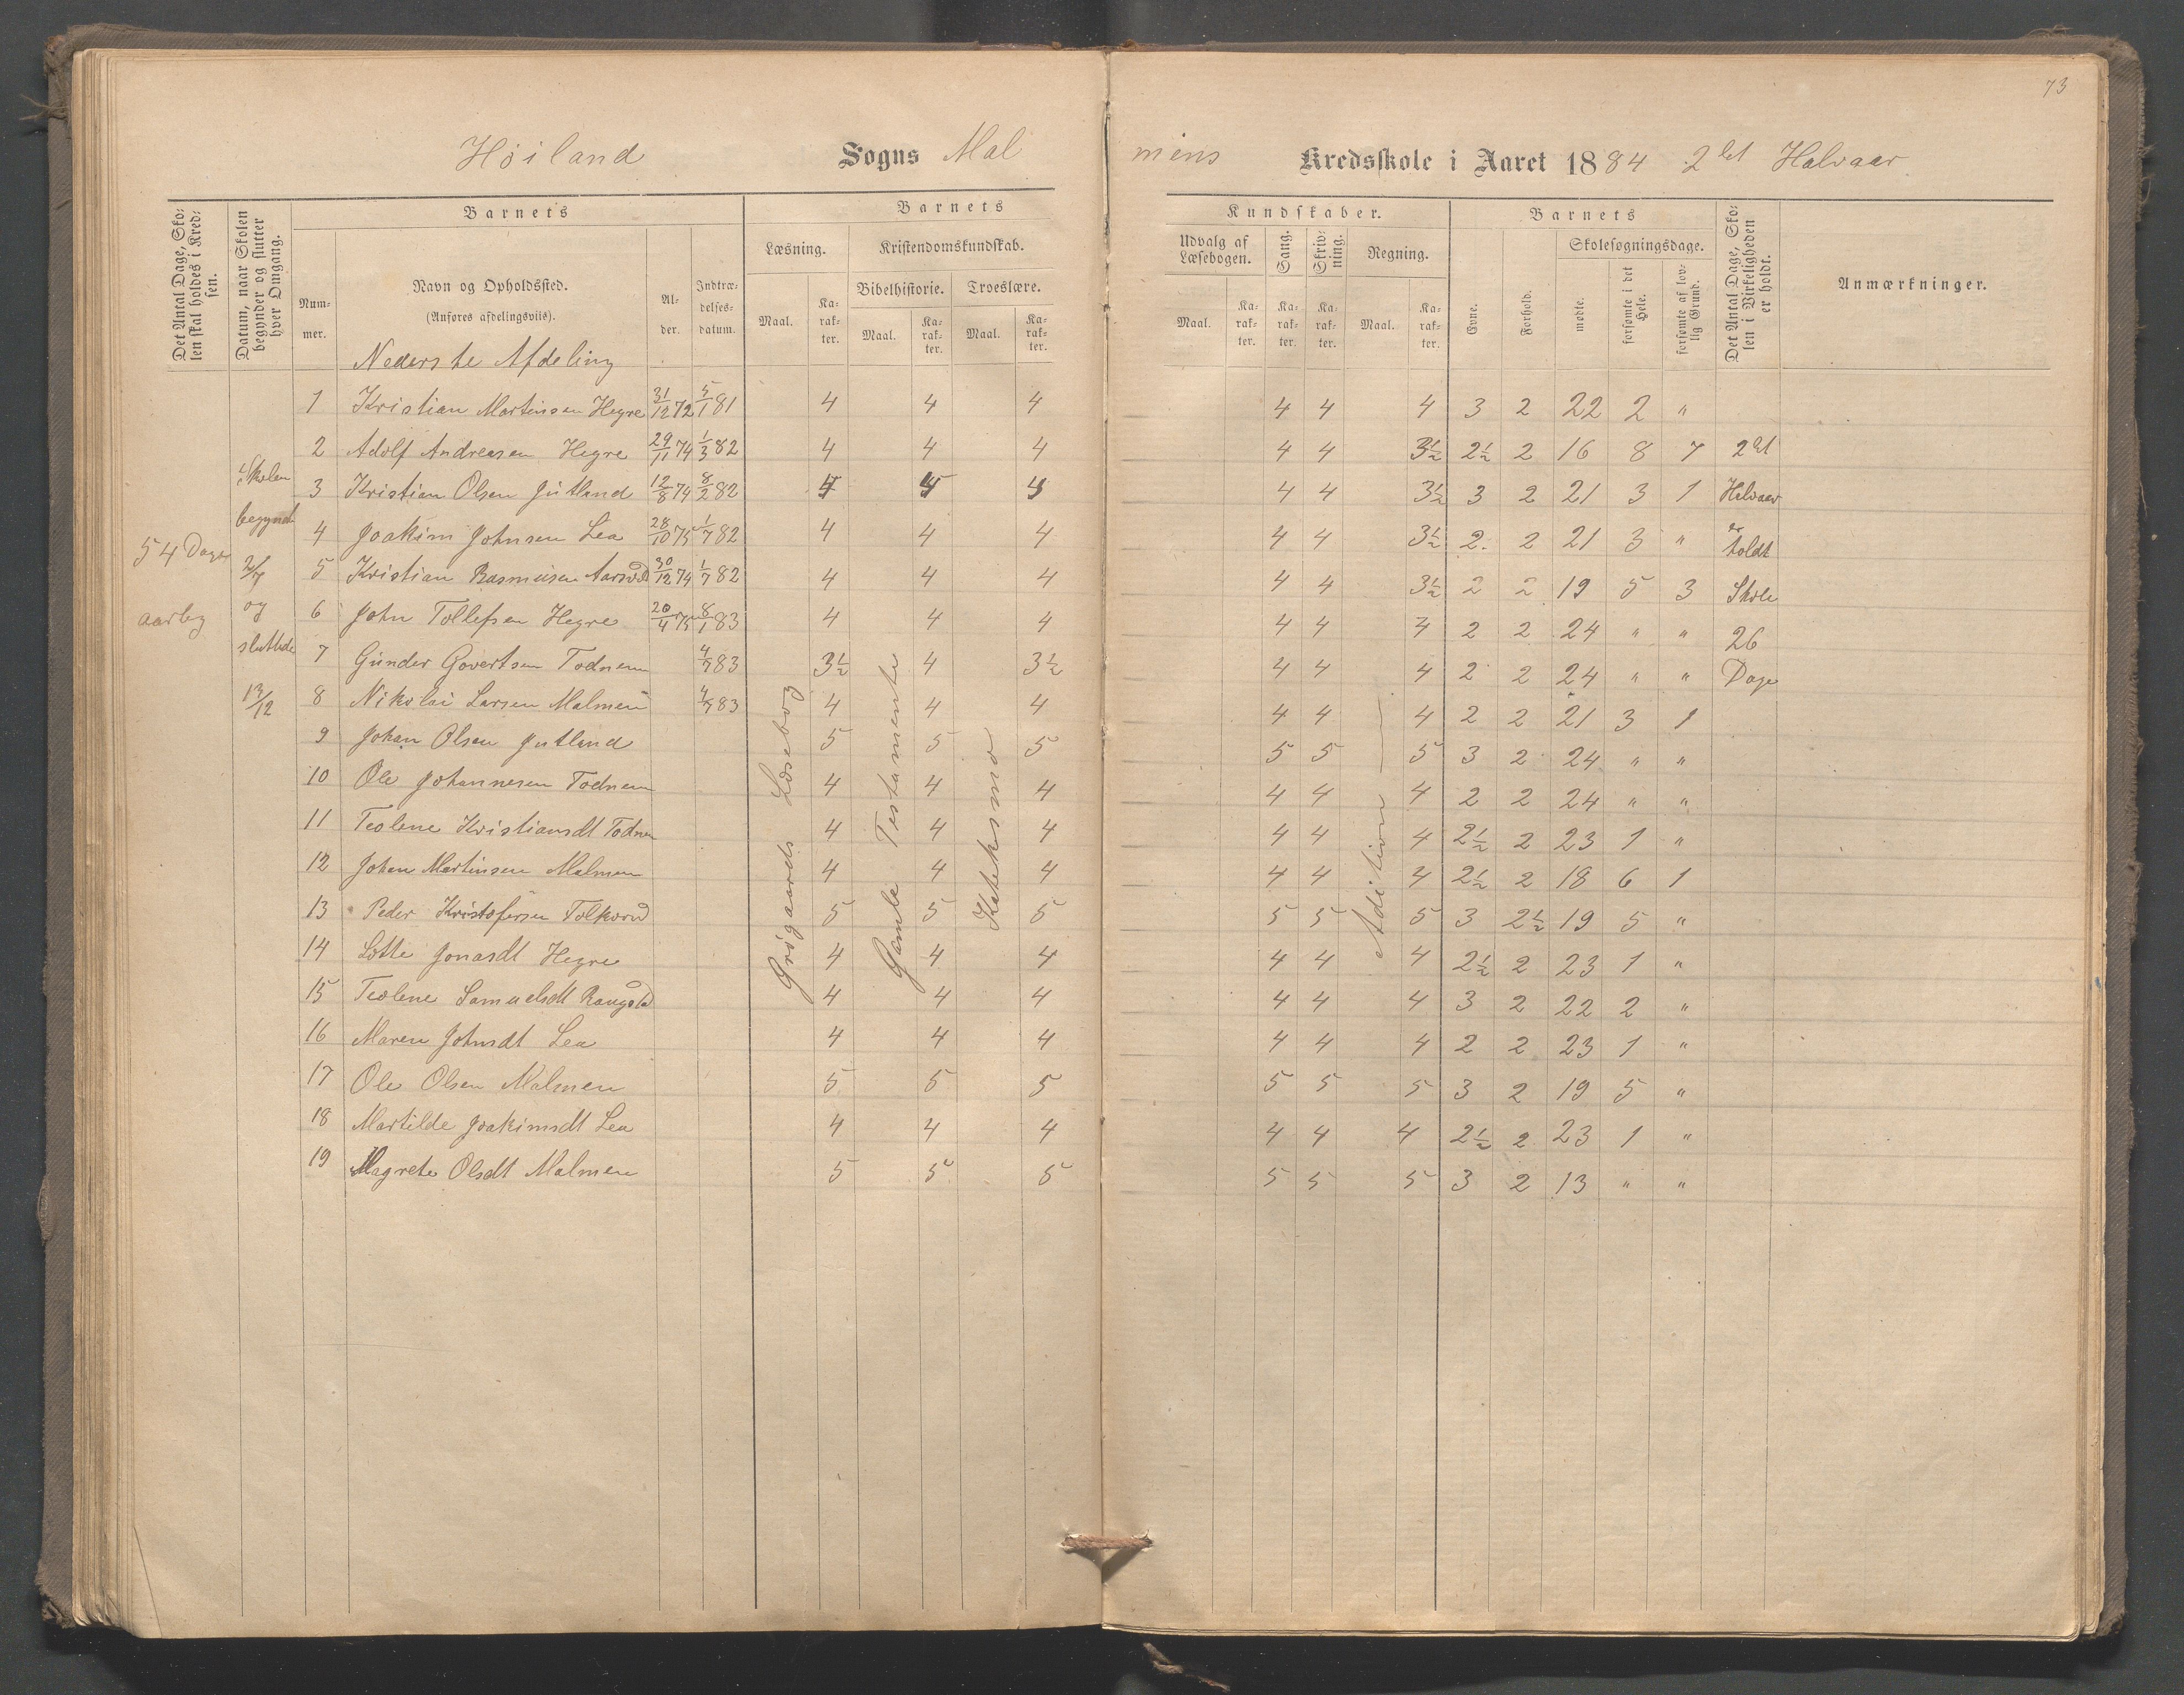 73
Høiland Sogns Malmens Kredsskole i Aaret 1884 2det Halvaar
Det Antal Dage, Skolen skal holdes i Kredsen.
Datum, naar Skolen begynder og slutter hver Omgang.
Barnets
Nummer.
Navn og Opholdssted.
(Anføres afdelingsvis).
Alder.
Indtrædelsesdatum.
Barnets Kundskaber.
Læsning.
Maal.
Karakter.
Kristendomskundskab.
Bibelhistorie.
Maal.
Karakter.
Troeslære.
Maal.
Karakter.
Udvalg af Læsebogen.
Maal.
Karakter.
Sang.
Karakter.
Skrivning.
Karakter.
Regning.
Maal.
Karakter.
Barnets
Evne.
Forhold.
Skolesøgningsdage.
mødte.
forsømte i det Hele.
forsømte af lovlig Grund.
Det Antal Dage, Skolen i Virkeligheden er holdt.
Anmærkninger.
Nederste Afdeling
1 Kristian Martinsen Hegre 31/12 72 5/1 81 4 4 4 4 4 4 3 2 22 2 "
2 Adolf Andreasen Hegre 29/11 74 1/3 82 4 4 4 4 4 3½ 2½ 2 16 8 7
3 Kristian Olsen Jutland 12/8 74 8/2 82 4 4 4 4 4 3½ 3 2 21 3 1
4 Joakim Johnsen Lea 28/10 75 1/7 82 4 4 4 4 4 3½ 2 2 21 3 "
5 Kristian Rasmusen 30/12 74 1/7 82 4 4 4 4 4 3½ 2 2 19 5 3
6 John Tollefsen Hegre 20/4 75 8/1 83 4 4 4 4 4 4 2 2 24 " "
7 Gunder Govertsen Todnem 4/7 83 3½ 4 3½ 4 4 4 2 2 24 " "
8 Nikolai Larsen Malmen 4/7 83 4 4 4 4 4 4 2 2 21 3 1
9 Johan Olsen Jutland 5 5 5 5 5 5 3 2 24 " "
10 Ole Johannesen Todnem 4 4 4 4 4 4 2 2 24 " "
11 Teolene Kristiansdt Todnem 4 4 4 4 4 4 2½ 2 23 1 "
12 Johan Martinsen Malmen 4 4 4 4 4 4 2½ 2 18 6 1
13 Peder Kristofersen Folkvord 5 5 5 5 5 5 3 2½ 19 5 "
14 Lotte Jonasdt Hegre 4 4 4 4 4 4 2½ 2 23 1 "
15 Teolene Samuelsdt 4 4 4 4 4 4 3 2 22 2 "
16 Maren Johnsdt Lea 4 4 4 4 4 4 2 2 23 1 "
17 Ole Olsen Malmen 5 5 5 5 5 5 3 2 19 5 "
18 Martilde Joakimsdt Lea 4 4 4 4 4 4 2½ 2 23 1 "
19 Magrete Olsdt Malmen 5 5 5 5 5 5 3 2 13 " "
54 Dage
aarlig
Skolen
begyndt
2/7
og
sluttede
13/12
Grøgaards Læsebog
Gamle Testamente
Katekismo
Adition
2det
Halvaar
er
holdt
Skole
26
Dage